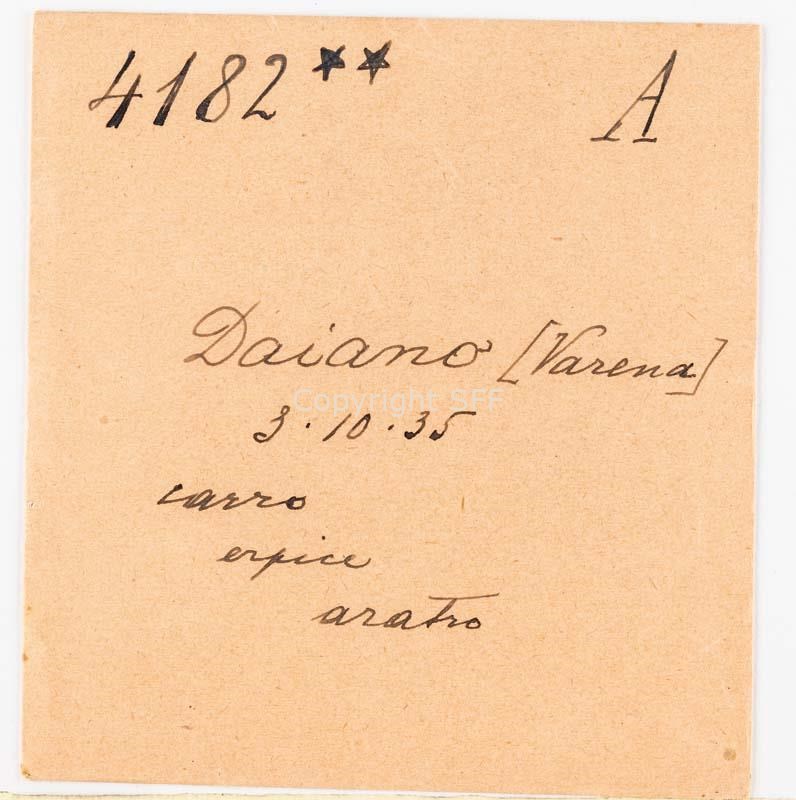 4182★★ A
Daiano [Varena]
Copyright SFF
3.10.35
carro
erpice
aratro